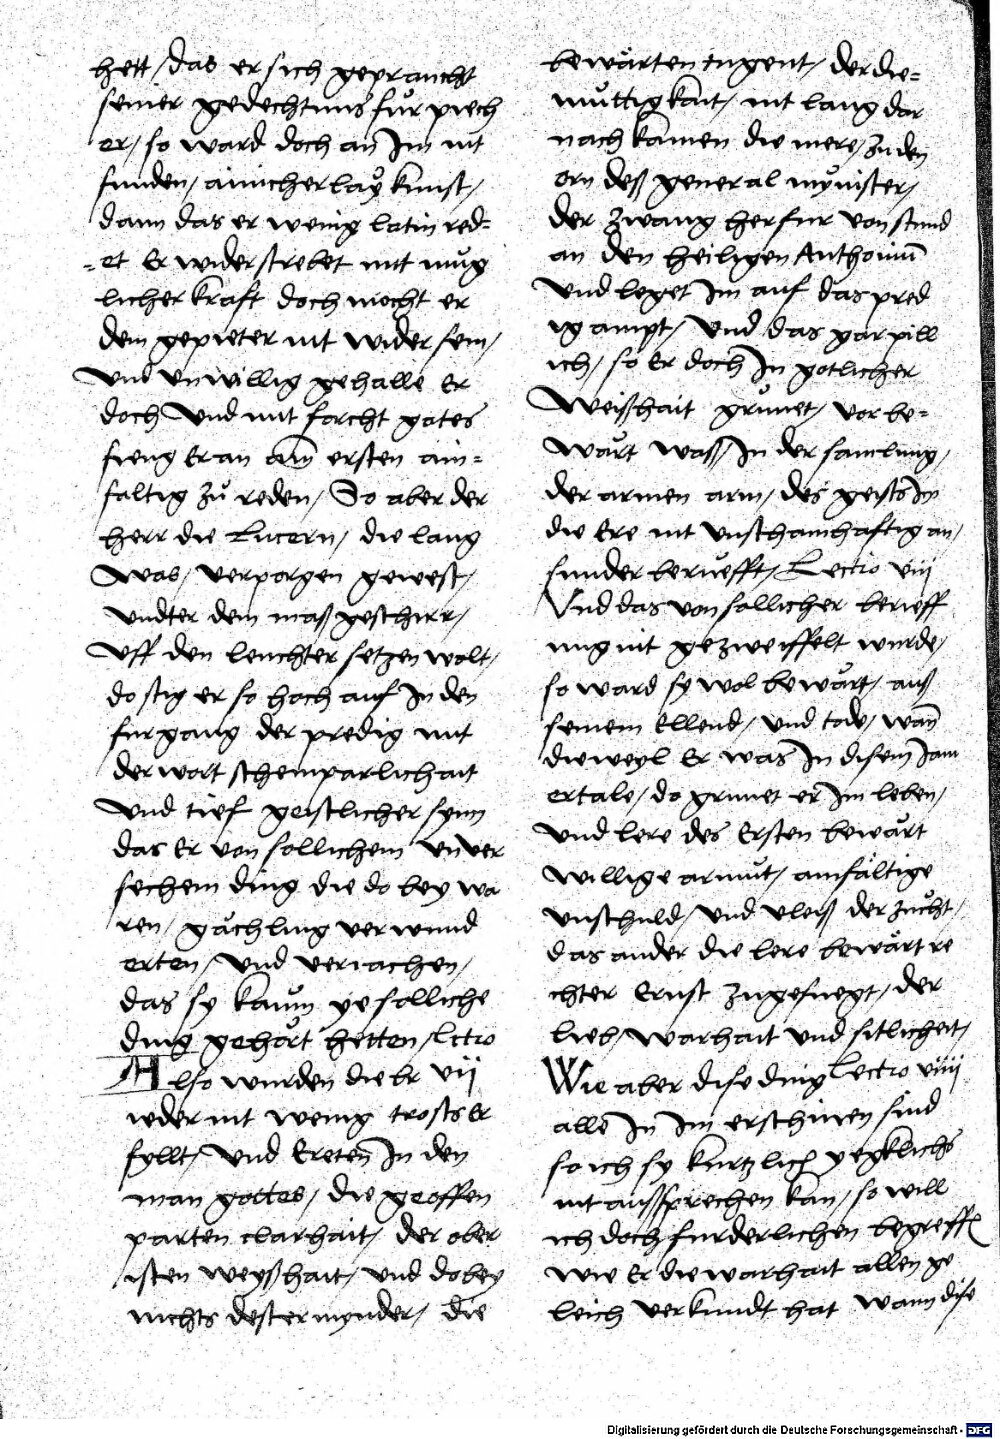 hett / das er sich gepraucht
seiner gedechtnus für piech
er / so ward doch an Im nit
funden / ainicherlay kunst /
dann das er wenig latin red=
=et Er widerstrebet mit mug
licher kraft doch mocht er
dem gepieter nit wider sein /
Und unwillig gehalle Er
doch Und mit forcht gotes
fieng Er an am ersten ain=
faltig zů reden / So aber der
herr die Lucern / die lang
Was / verporgen gewest /
undter dem mass geschirr /
Uff den leuchter setzen wolt /
do stig er so hoch auf In den
furgang der predig mit
der wort scheinparlichait
Und tief geistlicher synn
das Er von sollichem unver
sechem ding die do bey wa
ren / gächling verwund
erten / Und veriachen /
das sy kaum ye solliche
ding gehört hetten / Lctio
Also wurden die br vij
wder nit wenig trosts er
fyllt / Und Ereten In den
man gottes / die geoffen
parten clarhait / der ober
isten weyßhait / und dobey
nichts dester mynder / die
bewärten tugent / der die=
muttigkait / nit lang dar
nach kamen die mere / zu den
orn deß general mynister /
der zwang herfur von stund
an den heiligen Anthonium
Und leget Im auf das pred
ig ampt / Und das gar pill
ich / so Er doch In gotlicher
Weißhait grunet / vor be=
wart wass / In der samlung /
der armen arm / des geists Im
die Ere nit unschamhaftig an /
sunder berüefft / Lectio viij
Und das von sollicher berieff
ung nit gezweiffelt wurde /
so ward sy wol bewärt / auß
seinem Ellend / und tode / wan
dieweyl Er was In disem Jam
ertale / do grunet er Im leben /
Und lere des Ersten bewärt
willige armut / ainfältige
unschuld / und vleiß der zucht /
das ander die lere bewärt re
chter Ernst zugefuegt / der
lieb / warhait und sitlicheit /
Wie aber dise ding Lectio viiij
alle In Im erschinen sind
so ich sy kurtzlich yegklichs
nit aussprechen kan / so will
ich doch furderlichen begreffen
wie Er die warhait allen ge
leich verkundt hat Wann dise
Digitalisierung gefördert durch die Deutsche Forschungsgemeinschaft - DFG